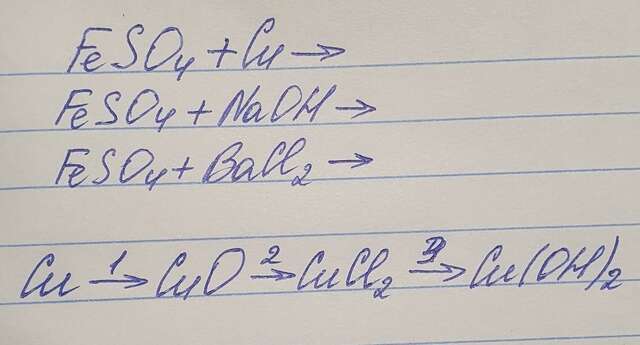 FeSO₄ + Cu →
FeSO₄ + NaOH →
FeSO₄ + BaCl₂ →
Cu —1→ CuO —2→ CuCl₂ —3→ Cu(OH)₂